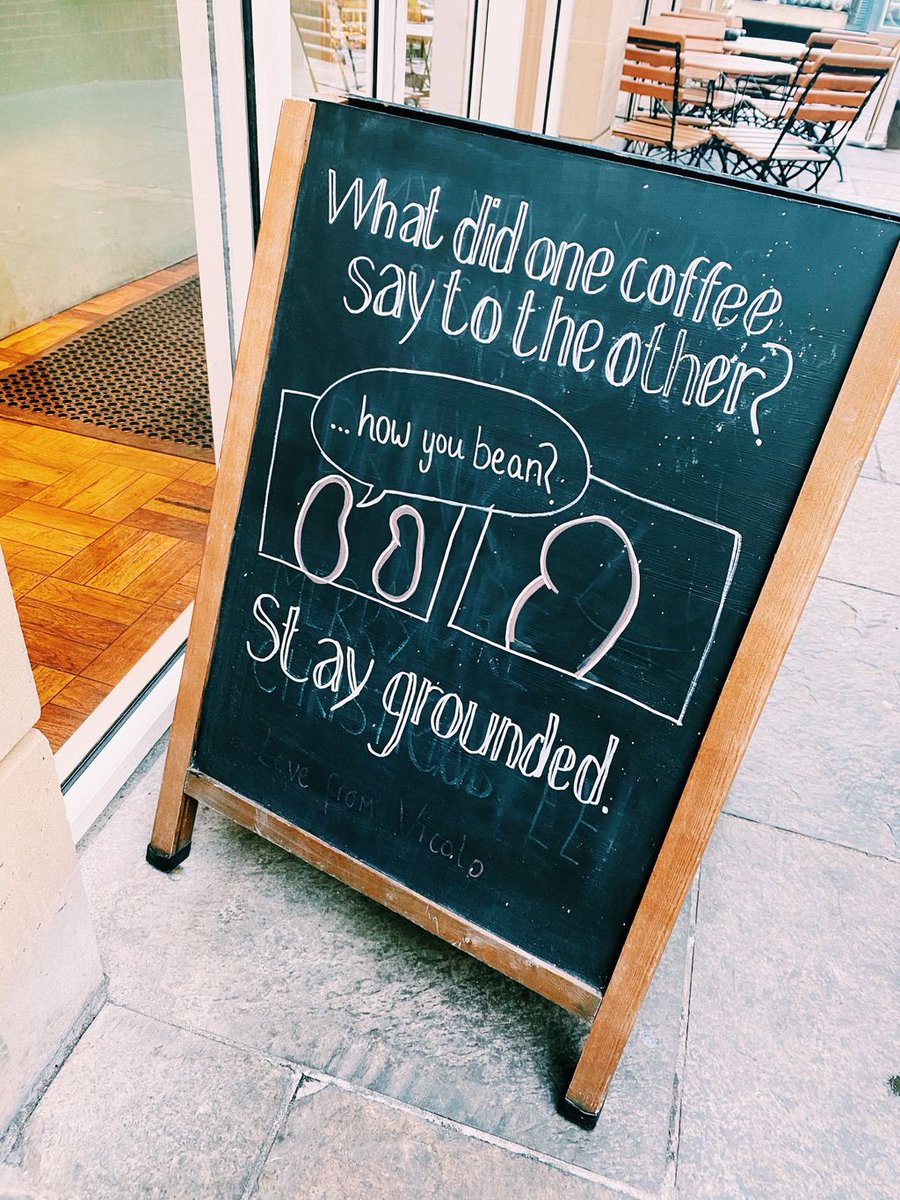 What did one coffee
say to the other?
...how you bean?
Stay grounded.
MERRY
CHRIST
Love from Vicalo